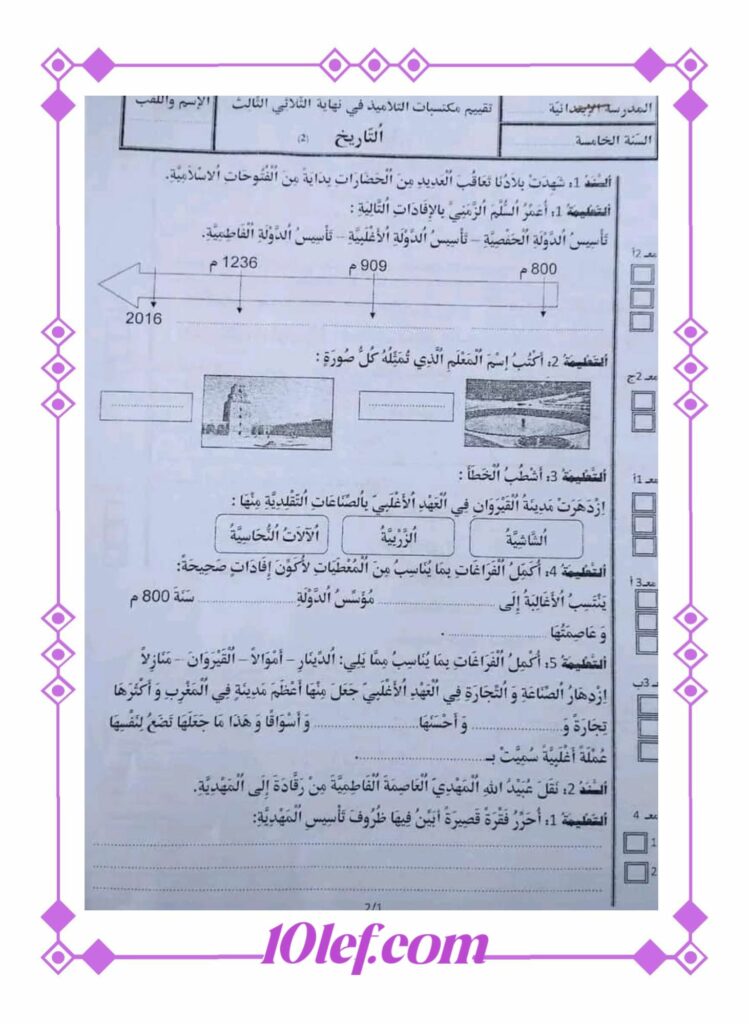 المدرسة الإبتدائية ...........
تقييم مكتسبات التلاميذ في نهاية الثلاثي الثالث
الإسم واللقب
السنة الخامسة ...........
اَلتّارِيخ (2)
اَلسَّنَدُ 1: شَهِدَتْ بِلاَدُنَا تَعَاقُبَ الْعَدِيدِ مِنَ الْحَضَارَاتِ بِدَايَةً مِنَ الْفُتُوحَاتِ الاِسْلاَمِيَّةِ.
اَلتَّعْلِيمَةُ 1: أُعَمِّرُ السُّلَّمَ الزَّمَنِيَّ بِالإِفَادَاتِ التَّالِيَةِ :
تَأْسِيسُ الدَّوْلَةِ الْحَفْصِيَّةِ – تَأْسِيسُ الدَّوْلَةِ الأَغْلَبِيَّةِ – تَأْسِيسُ الدَّوْلَةِ الْفَاطِمِيَّةِ.
معـ 2أ
800 م
909 م
1236 م
2016
اَلتَّعْلِيمَةُ 2: أَكْتُبُ اِسْمَ الْمَعْلَمِ الَّذِي تُمَثِّلُهُ كُلُّ صُورَةٍ :
معـ 2ج
اَلتَّعْلِيمَةُ 3: أَشْطُبُ الْخَطَأَ :
معـ 1أ
اِزْدَهَرَتْ مَدِينَةُ الْقَيْرَوَانِ فِي الْعَهْدِ الأَغْلَبِيِّ بِالصِّنَاعَاتِ التَّقْلِدِيَّةِ مِنْهَا :
اَلشَّاشِيَّةُ
اَلزَّرْبِيَّةُ
اَلآلاَتُ النُّحَاسِيَّةُ
اَلتَّعْلِيمَةُ 4: أُكَمِّلُ الْفَرَاغَاتِ بِمَا يُنَاسِبُ مِنَ الْمُعْطَيَاتِ لِأُكَوِّنَ إِفَادَاتٍ صَحِيحَةً:
معـ 3أ
يَنْتَسِبُ الأَغَالِبَةُ إِلَى ........................ مُؤَسِّسُ الدَّوْلَةِ ........................ سَنَةَ 800 م
وَ عَاصِمَتُهَا ........................ .
اَلتَّعْلِيمَةُ 5: أُكَمِّلُ الْفَرَاغَاتِ بِمَا يُنَاسِبُ مِمَّا يَلِي: الدِّينَارِ – أَمْوَالاً – الْقَيْرَوَانَ – مَنَازِلاً
عـ 3ب
اِزْدِهَارُ الصِّنَاعَةِ وَ التِّجَارَةِ فِي الْعَهْدِ الأَغْلَبِيِّ جَعَلَ مِنْهَا أَعْظَمَ مَدِينَةٍ فِي الْمَغْرِبِ وَ أَكْثَرَهَا
تِجَارَةً وَ........................ وَ أَحْسَنُهَا ........................ وَ أَسْوَاقًا وَ هَذَا مَا جَعَلَهَا تَضَعُ لِنَفْسِهَا
عُمْلَةً أَغْلَبِيَّةً سُمِيَّتْ بِـ........................ .
اَلسَّنَدُ 2: نَقَلَ عُبَيْدُ اللهِ الْمَهْدِيّ الْعَاصِمَةَ الْفَاطِمِيَّةَ مِنْ رَقَّادَةَ إِلَى الْمَهْدِيَّةِ.
اَلتَّعْلِيمَةُ 1: أُحَرِّرُ فَقْرَةً قَصِيرَةً أُبَيِّنُ فِيهَا ظُرُوفَ تَأْسِيسِ الْمَهْدِيَّةِ:
معـ 4
1
2
2/1
101ef.com